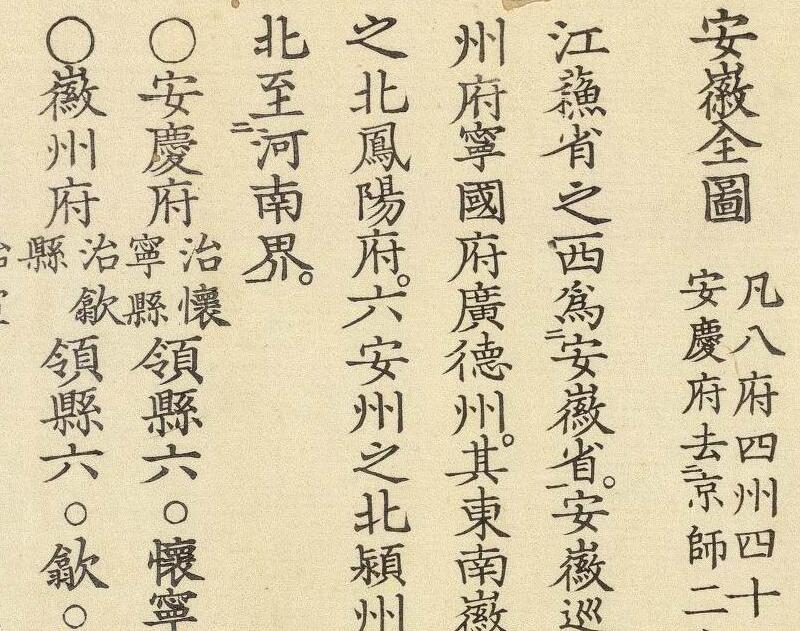 安徽全圖
凡八府四州四十
安慶府去二京師二
江蘓省之西爲二安徽省一。安徽巡
州府寧國府廣德州。其東南徽
之北鳳陽府。六安州之北潁州
北至二河南界一。
○安慶府
治懷
寧縣
領縣六。懷寧
○徽州府
治歙
縣
領縣六。歙。
治